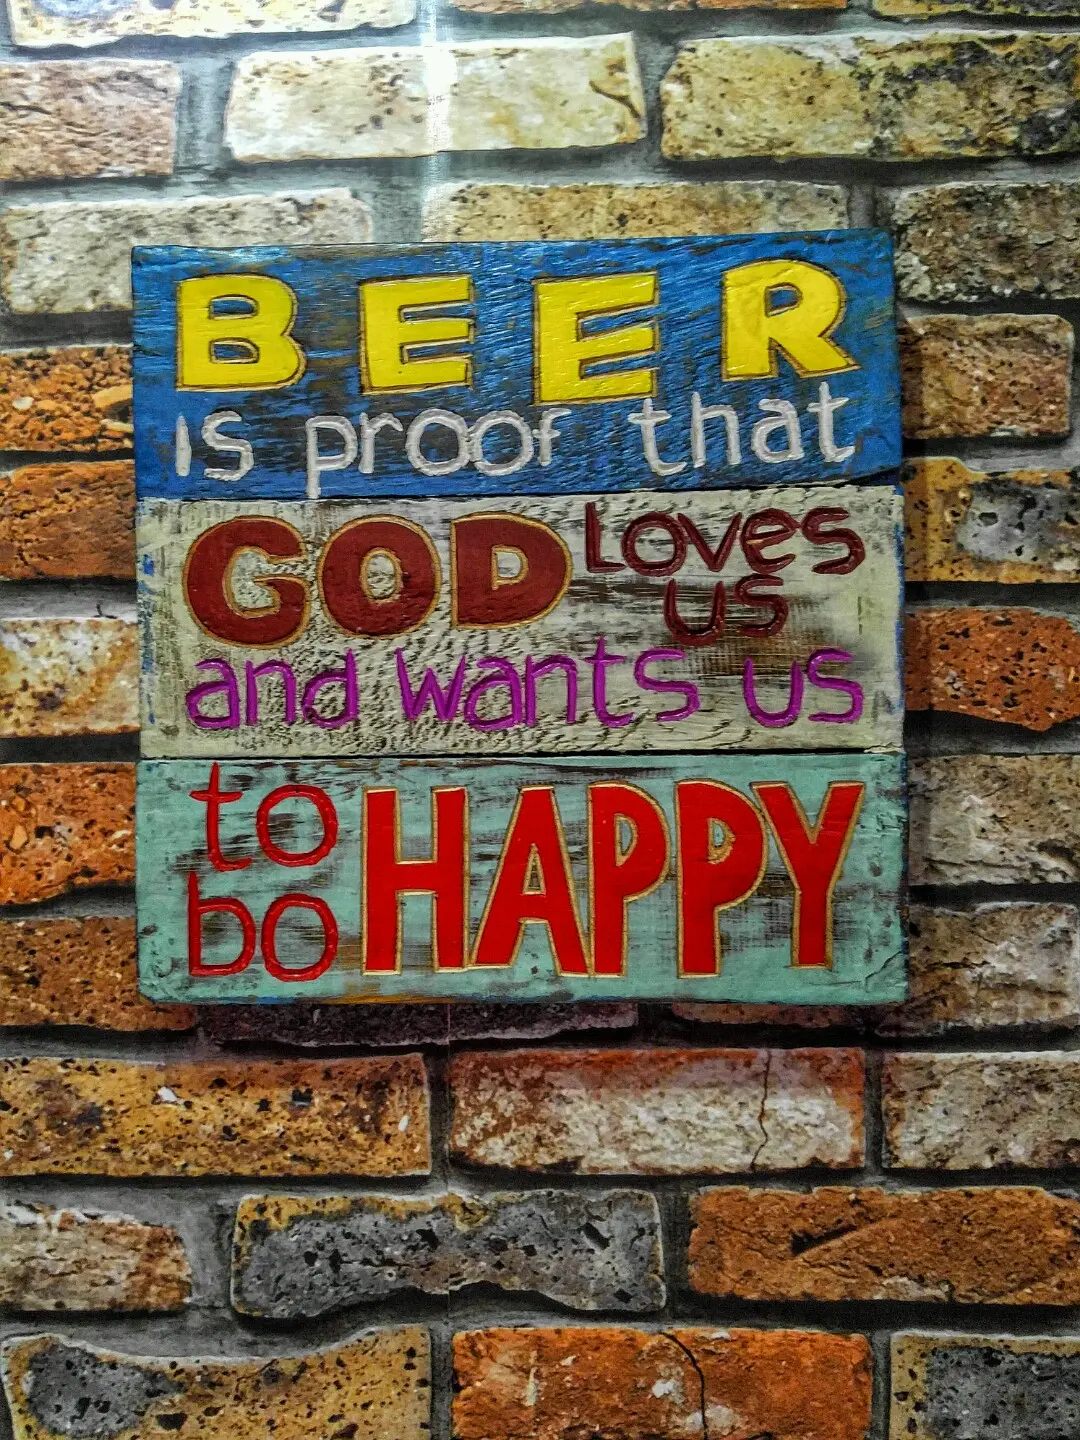 BEER
is proof that
GOD Loves
us
and wants us
to
bo HAPPY